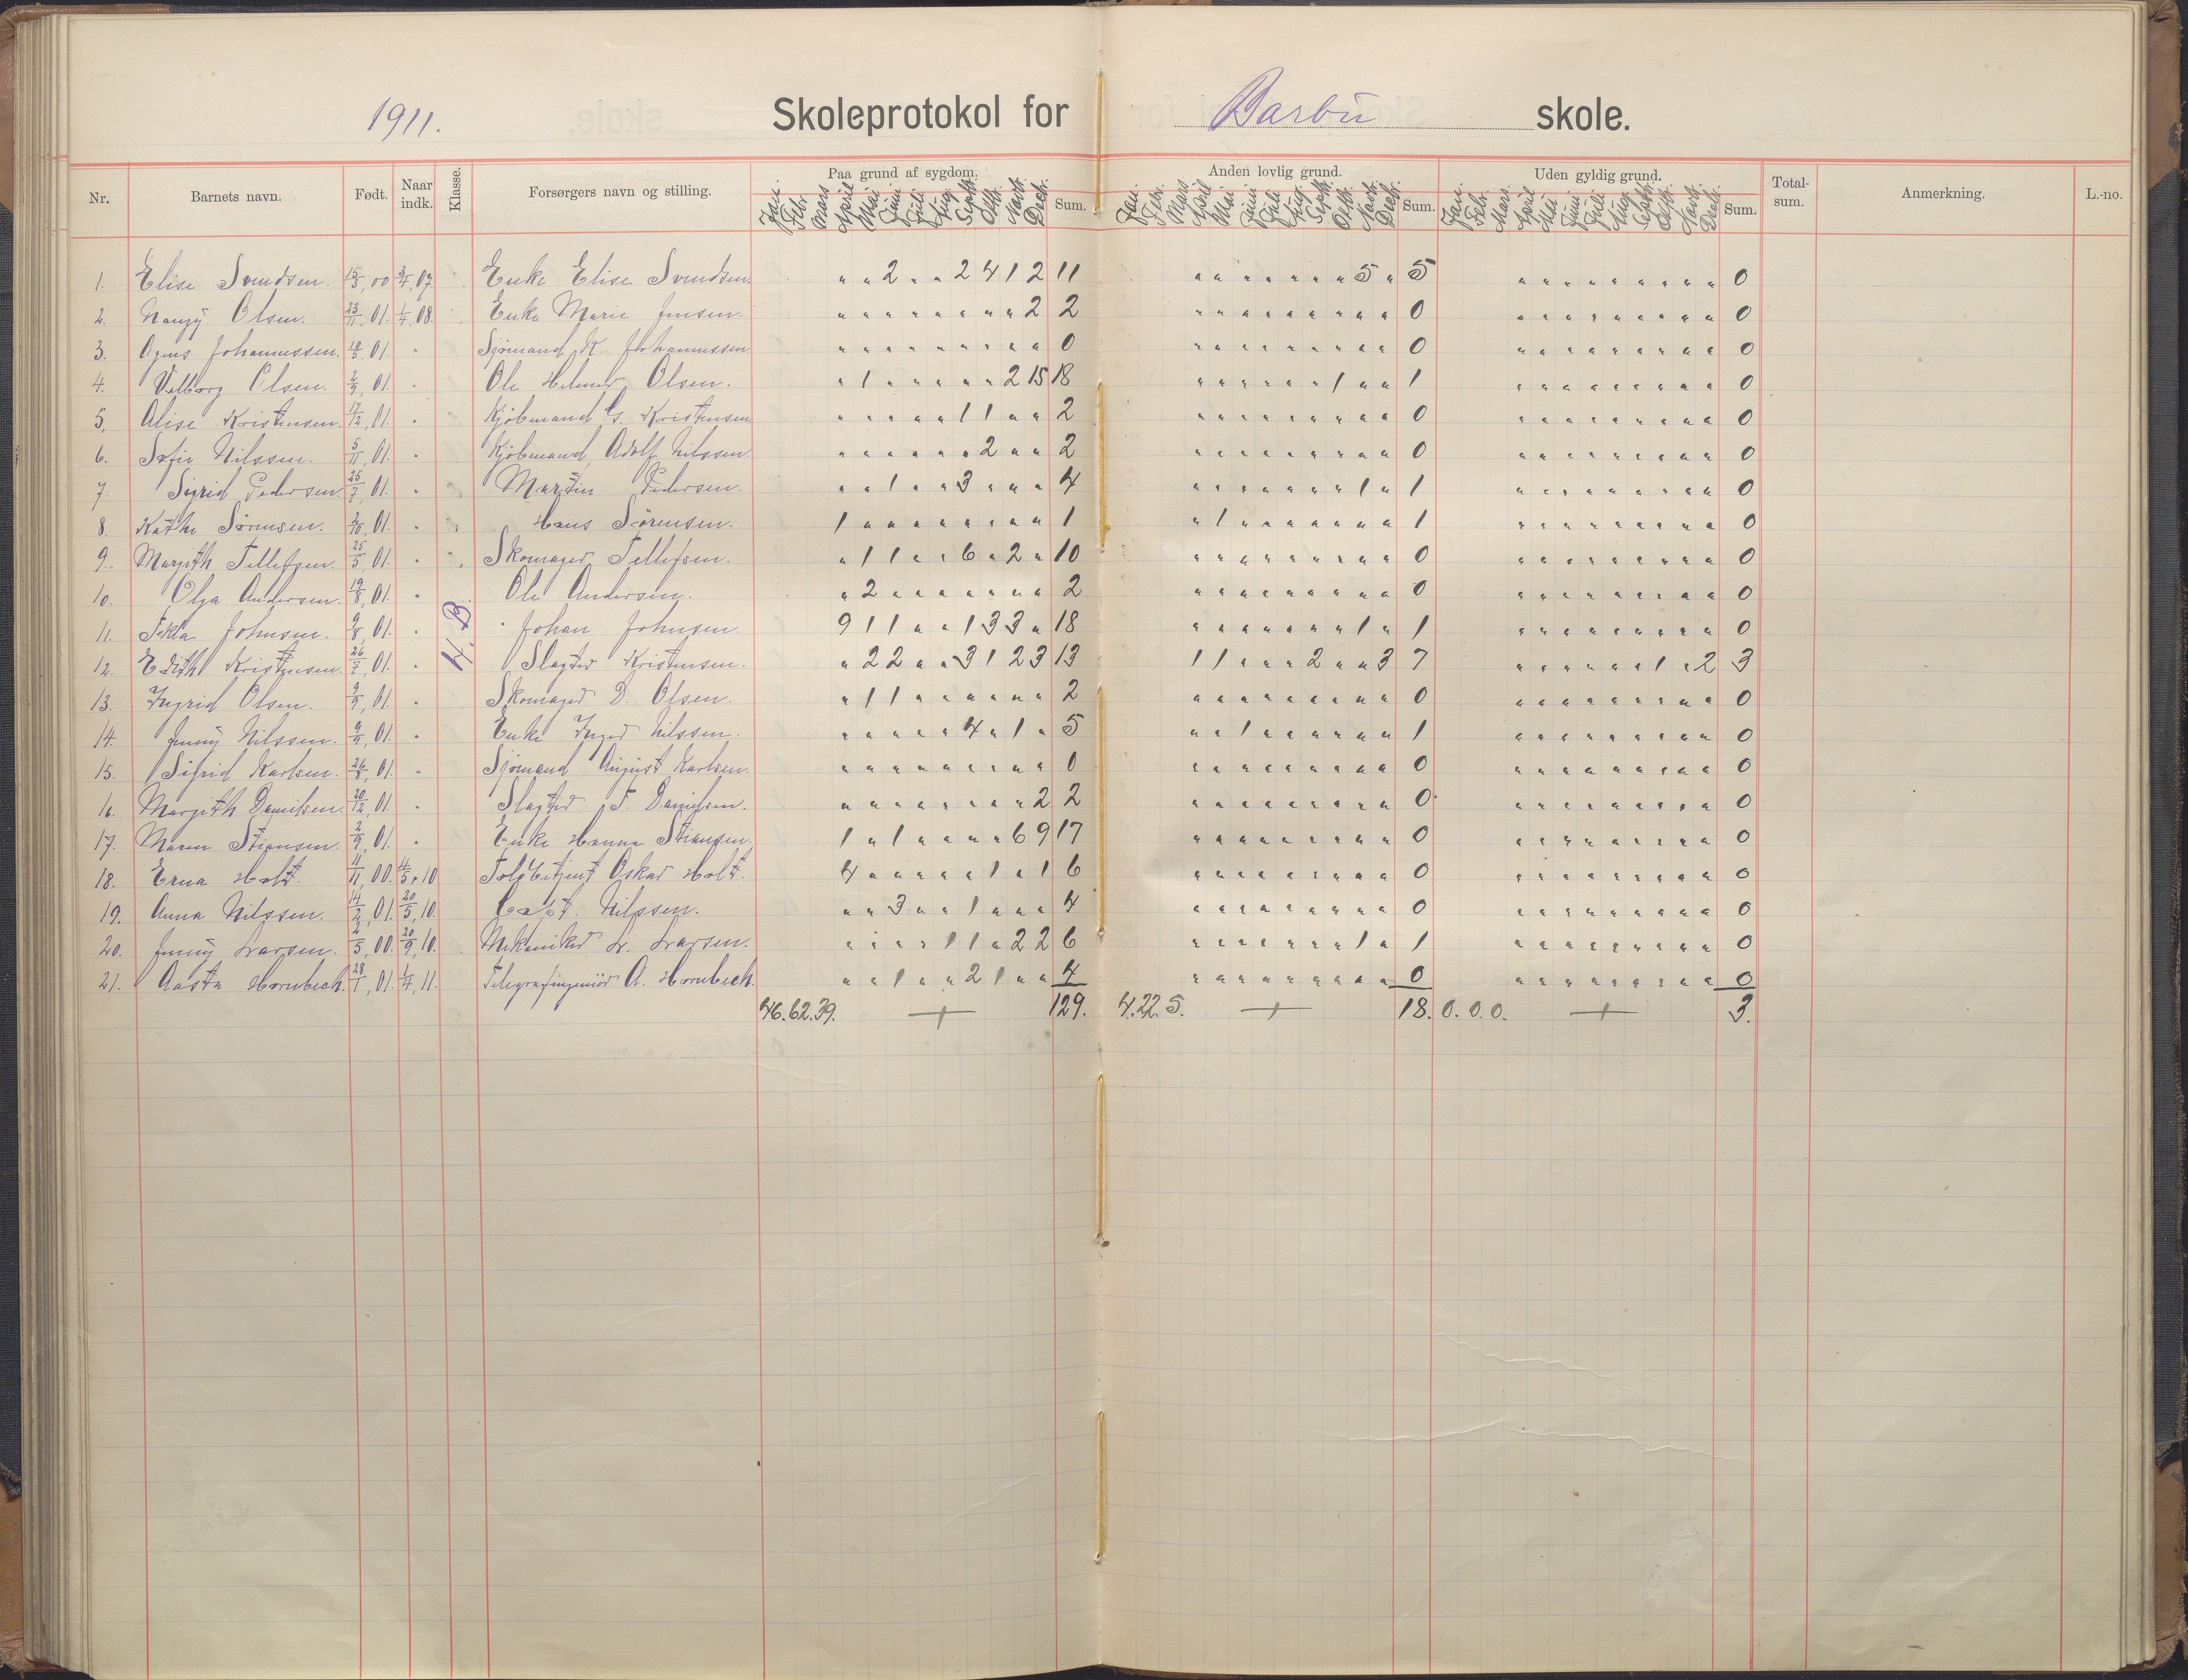 1911. Skoleprotokol for Barbu skole.
Nr. Barnets navn. Født. Naar indk. Klasse. Forsørgers navn og stilling. Paa grund af sygdom. Sum. Anden lovlig grund. Sum. Uden gyldig grund. Sum. Total-sum. Anmerkning. L.-no.
Jan. Febr. Mars April Mai Juni Juli Aug. Septb. Oktb. Novb. Decb. Jan. Febr. Mars April Mai Juni Juli Aug. Septb. Oktb. Novb. Decb. Jan. Febr. Mars. April Mai Juni Juli Aug. Septb. Oktb. Novb. Decb.
1. Elise Svendsen. 15/3, 00 3/4, 07. Enke Elise Svendsen. " " 2 " " 2 4 1 2 11 " " " " " " " 5 " 5 " " " " " " " " " 0
2. Nanzy Olsen. 23/11, 01. 1/4, 08. Enke Marie Jensen. " " " " " " " " 2 2 " " " " " " " " " 0 " " " " " " " " " 0
3. Agnes Johannessen. 01. " Sjömand K. Johannessen " " " " " " " " " 0 " " " " " " " " " 0 " " " " " " " " " 0
4. Valborg Olsen. 2/9, 01. " Ole Helmer Olsen. " 1 " " " " " 2 15 18 " " " " " " 1 " " 1 " " " " " " " " " 0
5. Alise Kristensen. 17/12, 01. " Kjöbmand G. Kristensen " " " " " 1 1 " " 2 " " " " " " " " " 0 " " " " " " " " " 0
6. Sofie Nilssen. 5/11, 01. " Kjöbmand Adolf Nilssen. " " " " " " 2 " " 2 " " " " " " " " " 0 " " " " " " " " " 0
7. Sigrid Pedersen. 25/7, 01. " Martin Pedersen. " " 1 " " 3 " " " 4 " " " " " " " 1 " 1 " " " " " " " " " 0
8. Kathe Sörensen. 2/10, 01. " Hans Sörensen. 1 " " " " " " " " 1 " 1 " " " " " " " 1 " " " " " " " " " 0
9. Margith Tellefsen. 25/5, 01. " Skomager Tellefsen. " 1 1 " " 6 " 2 " 10 " " " " " " " " " 0 " " " " " " " " " 0
10. Olga Andersen. 19/8, 01. " Ole Andersen. " 2 " " " " " " " 2 " " " " " " " " " 0 " " " " " " " " " 0
11. Tekla Johnsen. 9/8, 01. " 4. B. Johan Johnsen. 9 1 1 " " 1 3 3 " 18 " " " " " " " 1 " 1 " " " " " " " " " 0
12. Edith Kristensen. 26/7, 01. " Slagter Kristensen. " 2 2 " " 3 1 2 3 13 1 1 " " " 2 " " 3 7 " " " " " " 1 " 2 3
13. Ingrid Olsen. 01. " Skomager D. Olsen. " 1 1 " " " " " " 2 " " " " " " " " " 0 " " " " " " " " " 0
14. Jenny Nilssen. 01. " Enke Inger Nilssen. " " " " " 4 " 1 " 5 " " 1 " " " " " " 1 " " " " " " " " " 0
15. Sigrid Karlsen. 26/8, 01. " Sjömand August Karlsen. " " " " " " " " " 0 " " " " " " " " " 0 " " " " " " " " " 0
16. Margith Danielsen. 20/12, 01. " Slagter T. Danielsen. " " " " " " " " 2 2 " " " " " " " " " 0. " " " " " " " " " 0
17. Maren Stiansen. 2/9, 01. " Enke Hanna Stiansen. 1 " 1 " " " " 6 9 17 " " " " " " " " " 0 " " " " " " " " " 0
18. Erna Holt. 11/11, 00. 4/5, 10 Toldbetjent Oskar Holt. 4 " " " " " 1 " 1 6 " " " " " " " " " 0 " " " " " " " " " 0
19. Anna Nilssen. 14/2, 01. 20/5, 10. Capt. Nilssen. " " 3 " " 1 " " " 4 " " " " " " " " " 0 " " " " " " " " " 0
20. Jenny Larsen. 2/5, 00. 20/9, 10. Mekaniker L. Larsen. " " " " 1 1 " 2 2 6 " " " " " " " 1 " 1 " " " " " " " " " 0
21. Aasta Hornbech. 28/1, 01. 1/4, 11. Telegrafingeniör A. Hornbech. " " 1 " " 2 1 " " 4 " " " " " " " " " 0 " " " " " " " " " 0
46. 62. 39. + 129. 4. 22. 5. + 18. 0. 0. 0. + 3.